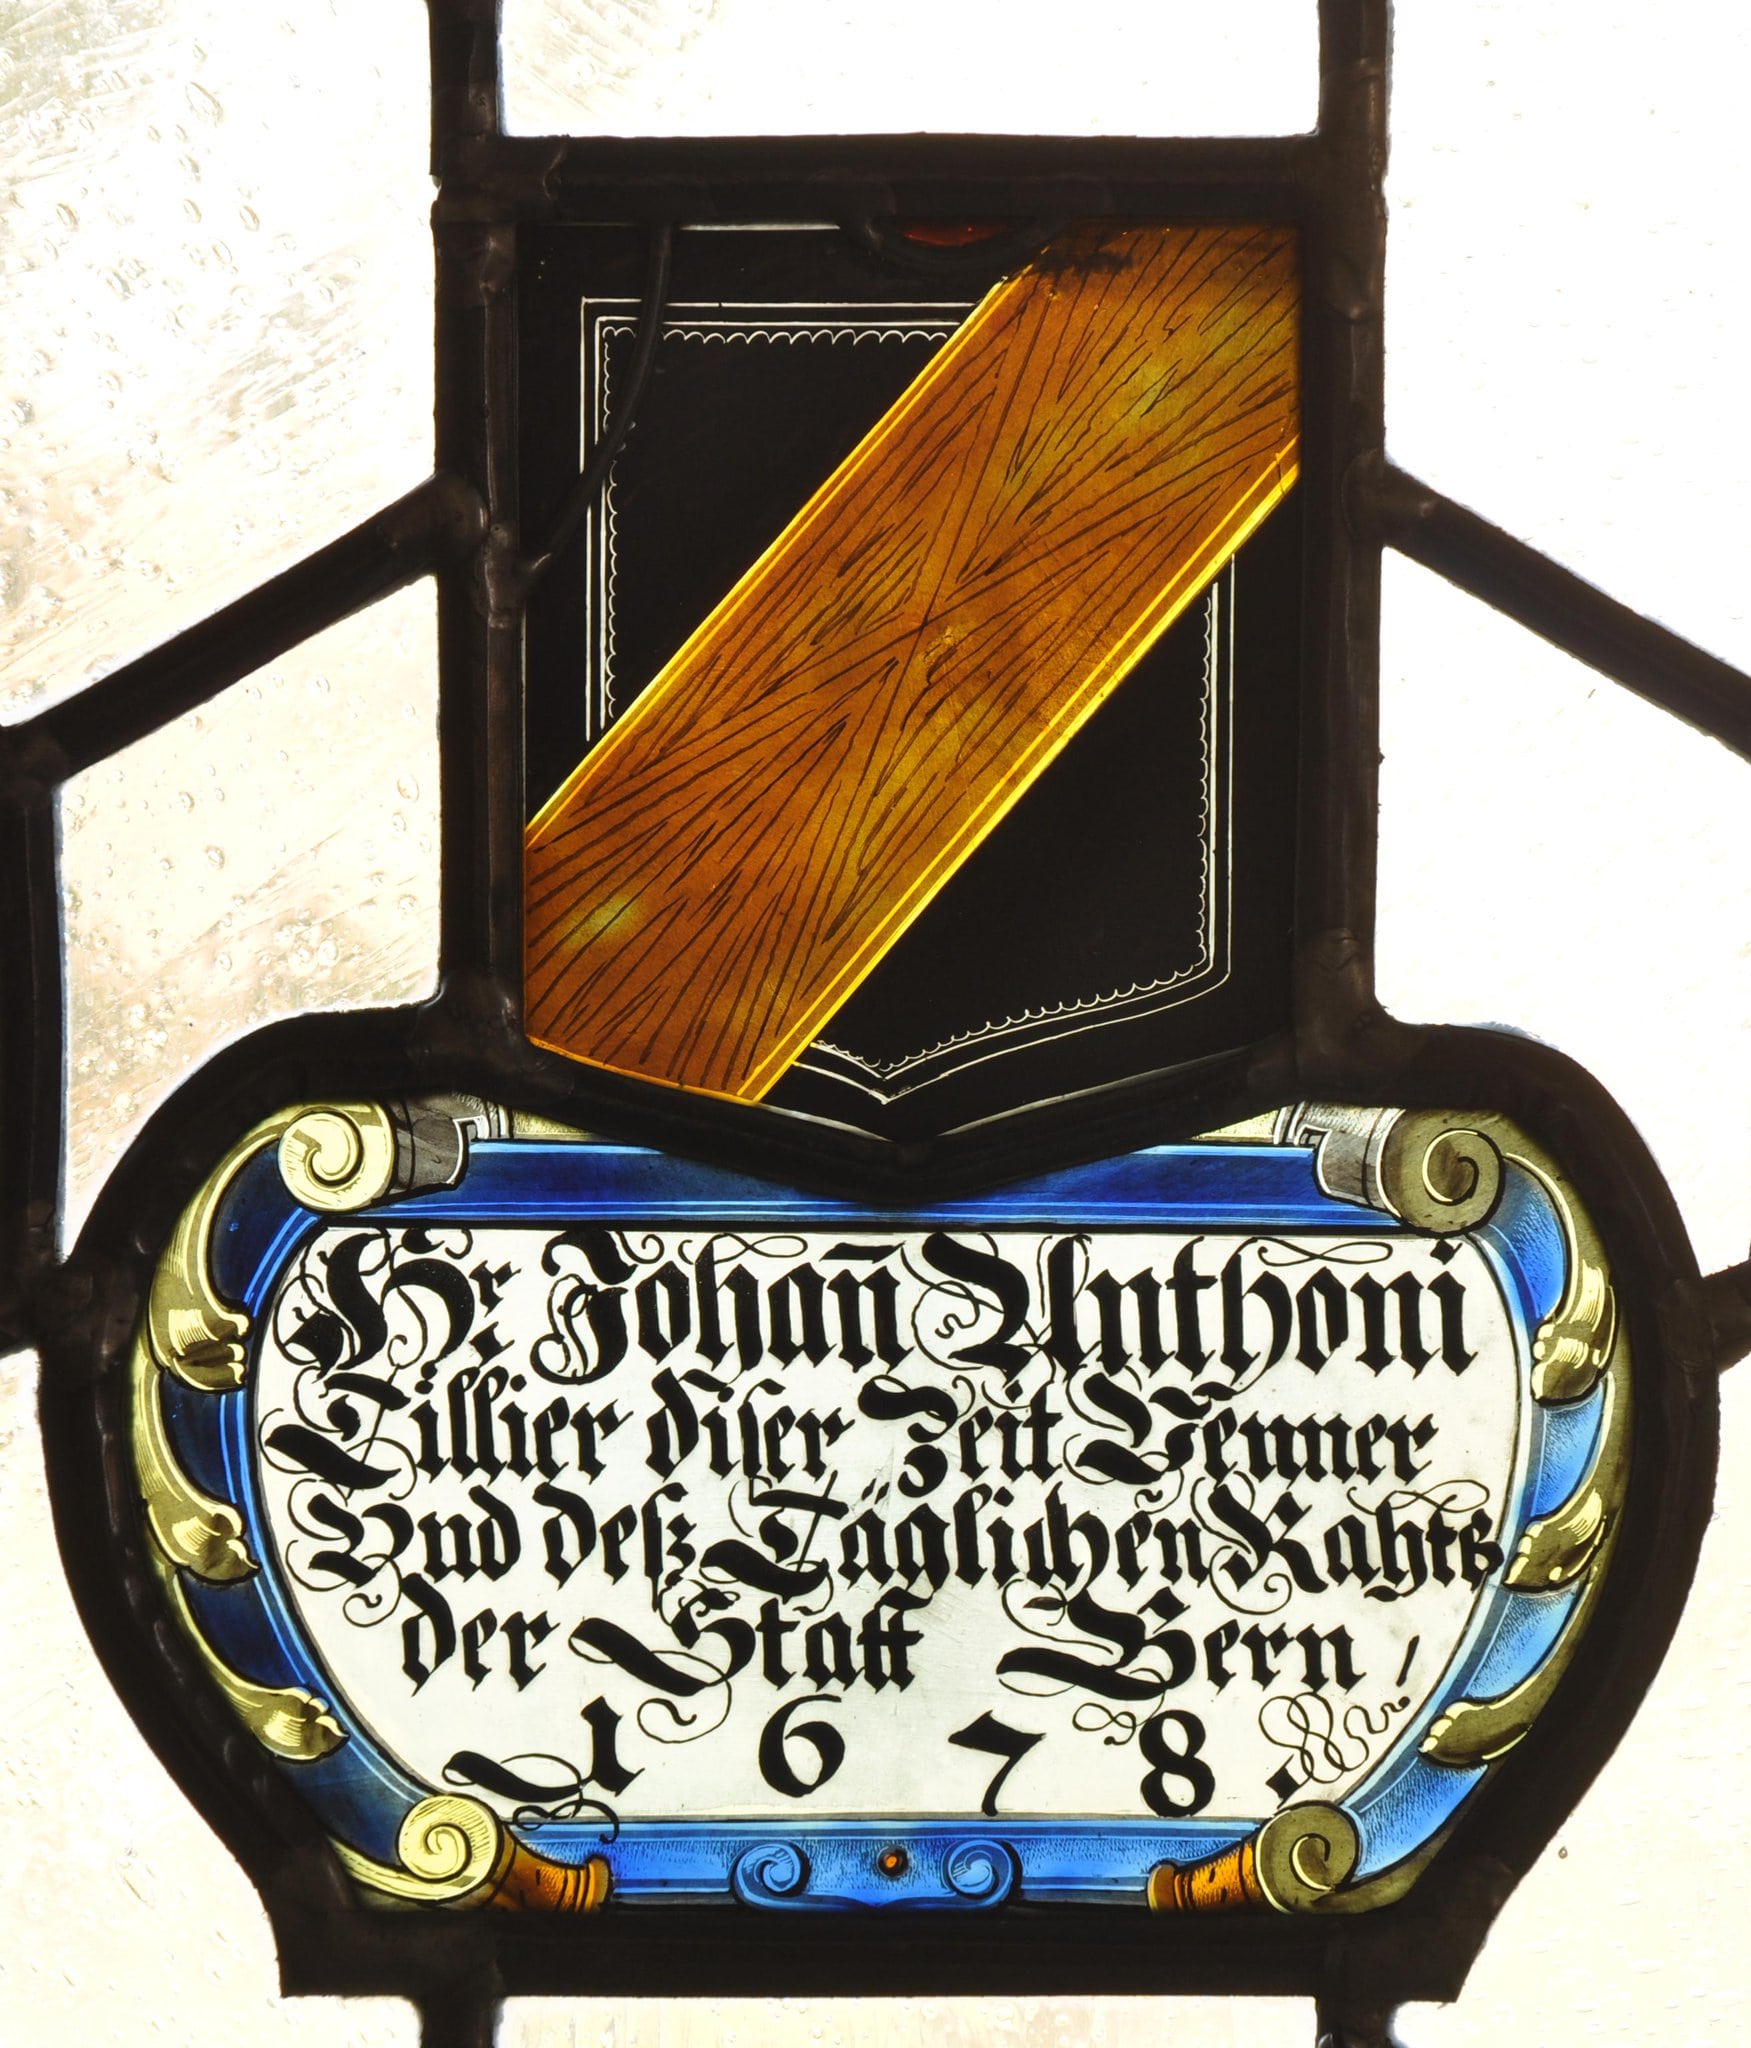 Hr. Johañ Anthoni
Tillier diser Zeit Venner
Vnd deß Täglichen Rahts
der Statt Bern,
1678.